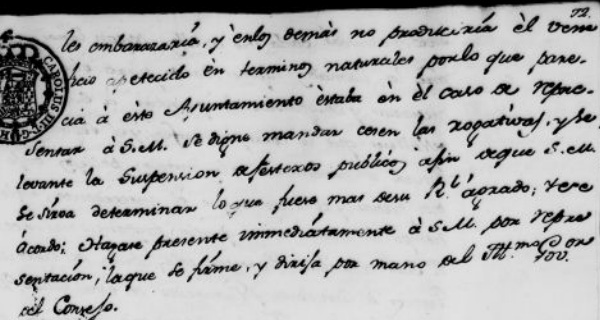 72.
les embarazaría, y en los demás no produciría èl vene
ficio apetecido èn terminos naturales por lo que pare-
cia à èsto Ayuntamiento èstaba èn èl caso de repre-
sentar à S. M. Se digne mandar cesen las rogativas, y se
levante la Suspension de festexos publicos afin de que S. M.
se sirva determinar lo que fuese mas de su Rl. àgrado; y se
àcordó; Hagase presente immediàtamente à S. M. por repre
sentación; la que se firme, y dirija por mano del Ill.mo Gov.or
del Consejo.
CAROLUS III